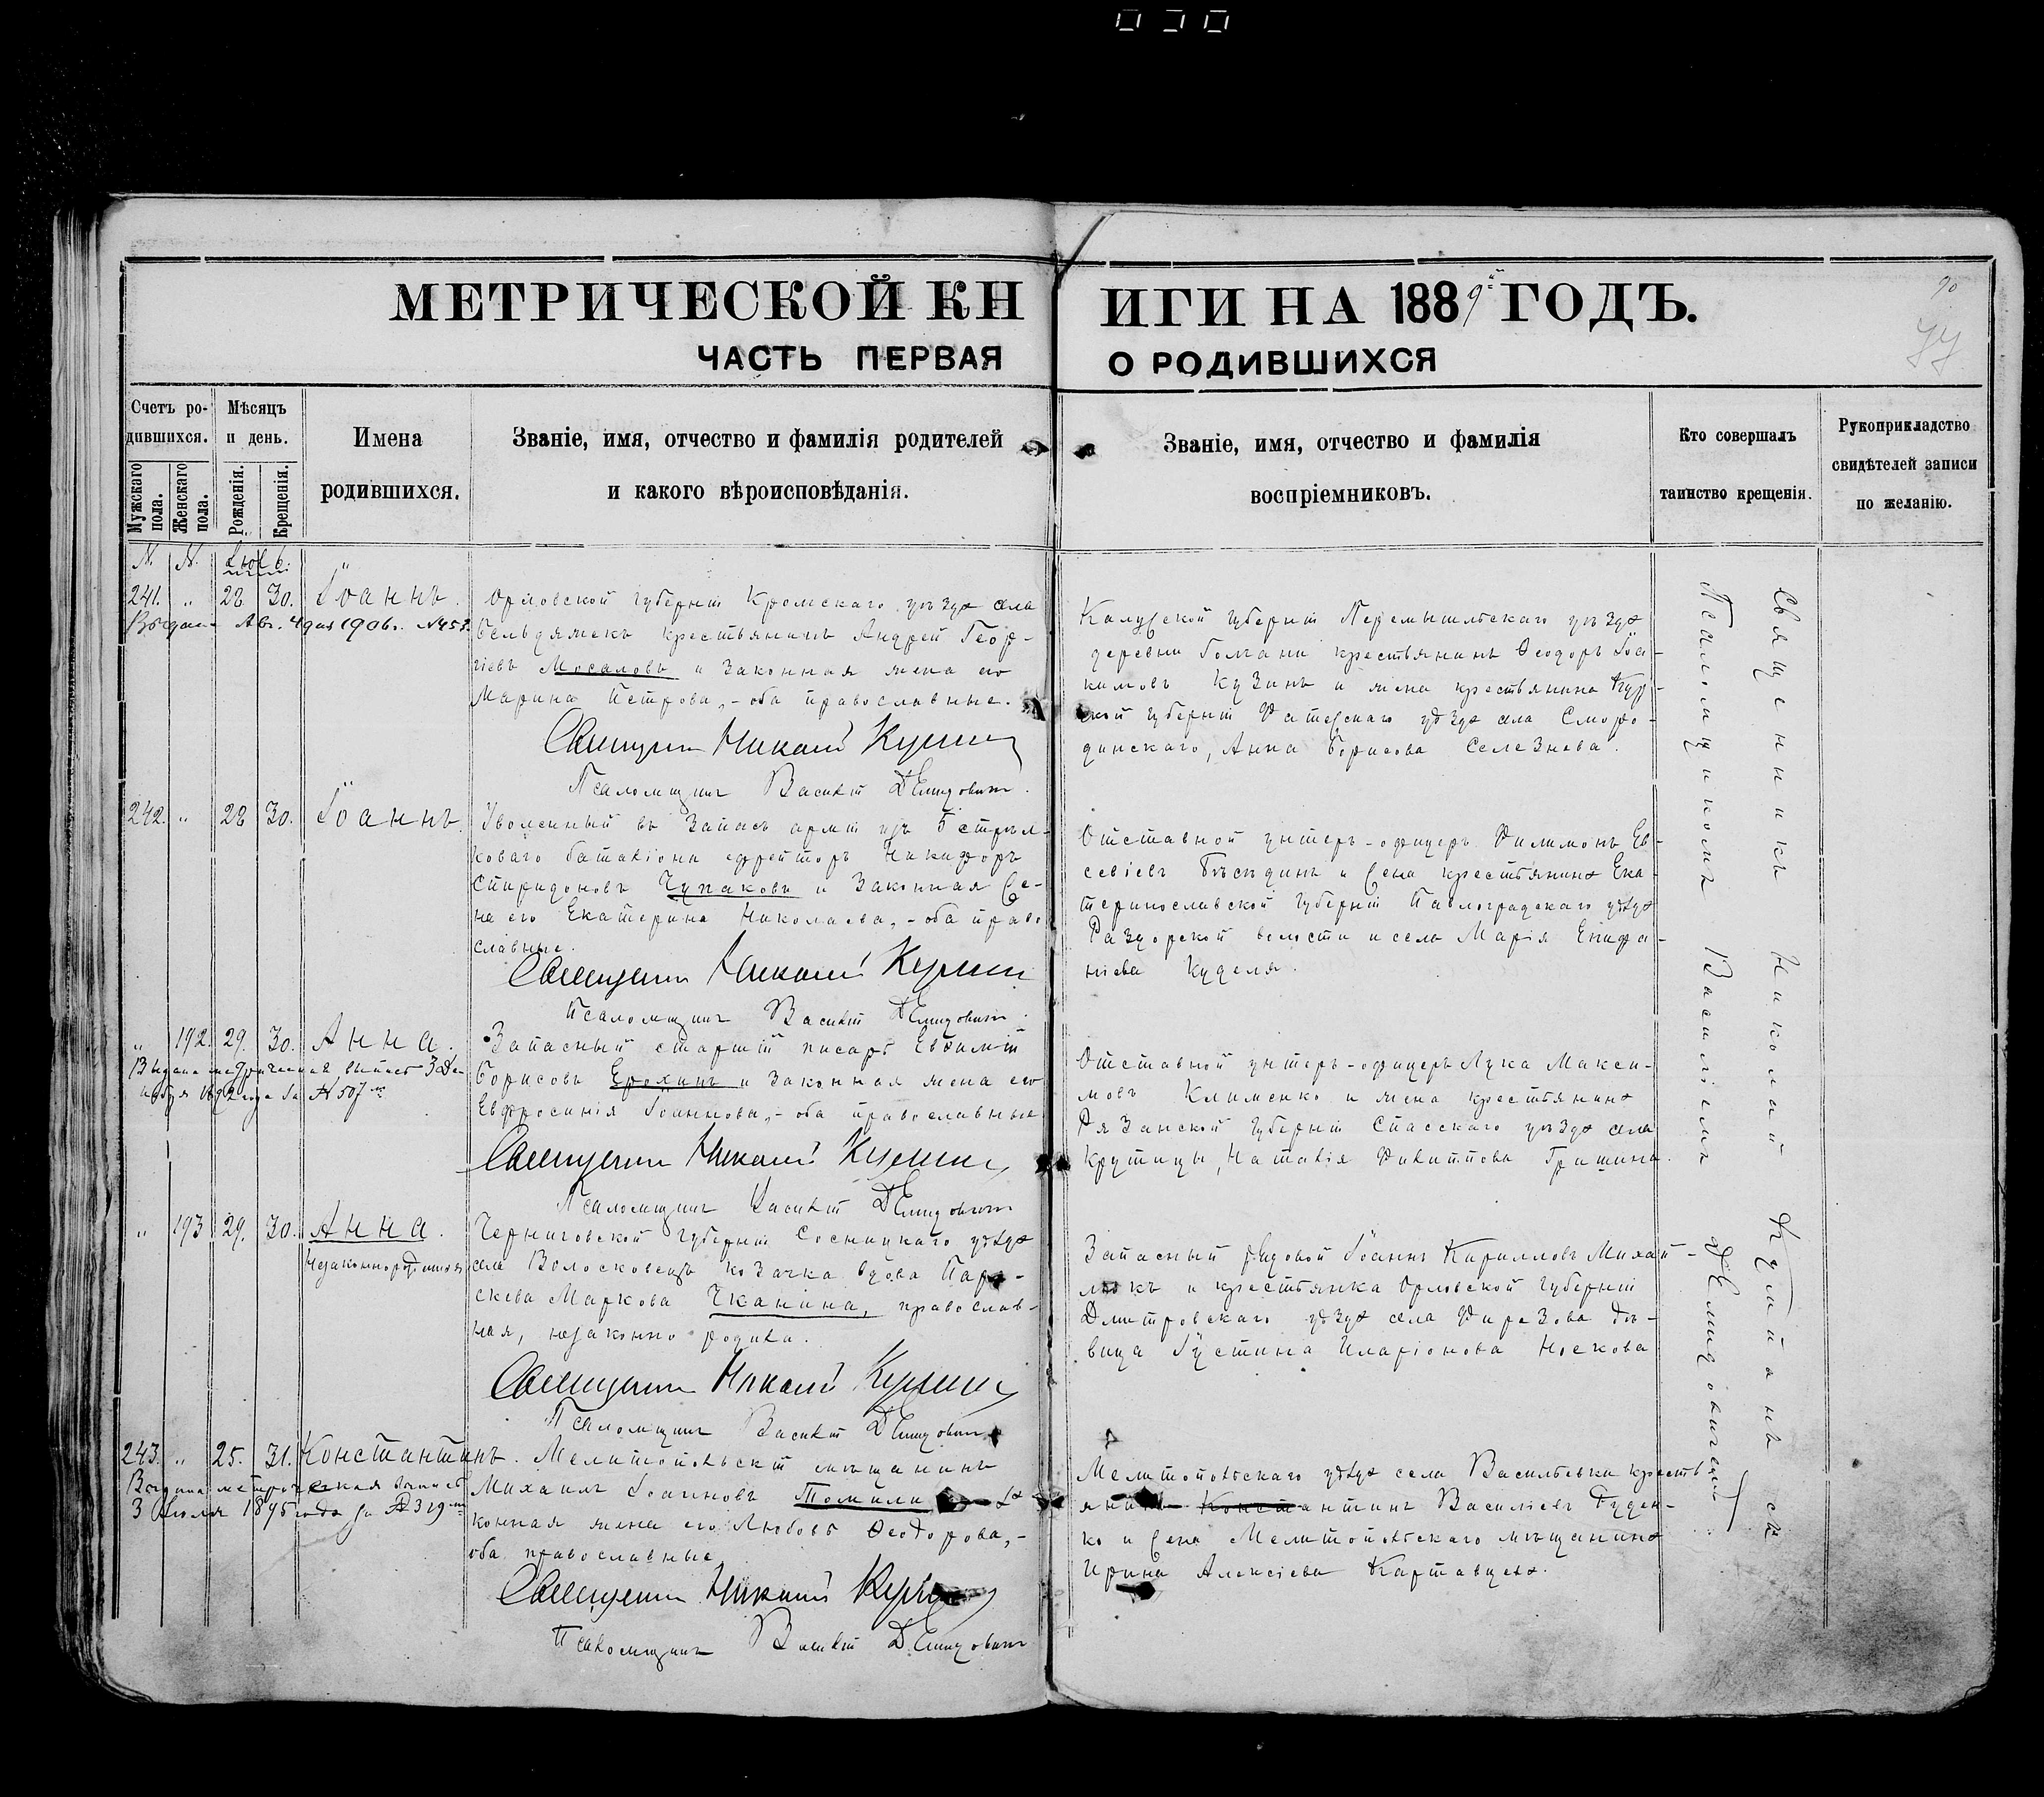 МЕТРИЧЕСКОЙ КНИГИ НА 1889й ГОДЪ.
ЧАСТЬ ПЕРВАЯ О РОДИВШИХСЯ
90
Счетъ родившихся.
Мужскаго пола.
Женскаго пола.
Мѣсяцъ и день.
Рожденія.
Крещенія.
Имена
родившихся.
Званіе, имя, отчество и фамилія родителей
и какого вѣроисповѣданія.
Званіе, имя, отчество и фамилія
воспріемниковъ.
Кто совершалъ
таинство крещенія.
Рукоприкладство
свидѣтелей записи
по желанію.
№. №. Іюль.
241. " 28 30. Іоаннъ.
Орловской губерніи Кромскаго уѣзда села
крестьянинъ Андрей Геор-
гіевъ Мосаловъ и законная жена его
Марина Петрова, - оба православные.
Священникъ Николай
Псаломщикъ Василій Демидовичъ.
Калужской губерніи Перемышльскаго уѣзда
деревни крестьянинъ Ѳеодоръ Іоа-
кимовъ Кузинъ и жена крестьянина Кур-
ской губерніи Фатежскаго уѣзда села Сморо-
динскаго, Анна Борисова Селезнева.
242. " 28 30. Іоаннъ.
Уволенный въ запасъ арміи изъ 5 стрѣл-
коваго баталіона ефрейторъ Никифоръ
Спиридоновъ Чупаковъ и законная же-
на его Екатерина Николаева, - оба право
славные.
Священникъ Николай
Псаломщикъ Василій Демидовичъ.
Отставной унтеръ-офицеръ Филимонъ Ев-
севіевъ Бѣсѣдинъ и жена крестьянина Ека-
теринославской губерніи Павлоградскаго уѣзда
Раздорской волости и села Марія Епифа-
ніева Куделя.
" 192. 29. 30. Анна.
Выдана метрическая выпись 3 Де-
кабря 1892 года за № 507
Запасный старшій писарь Евѳимій
Борисовъ Ерохинъ и законная жена его
Евфросинія Іоаннова, - оба православные
Священникъ Николай
Псаломщикъ Василій Демидовичъ
Отставной унтеръ-офицеръ Лука Макси-
мовъ Клименко и жена крестьянина
Рязанской губерніи Спасскаго уѣзда села
Крутицы, Наталія Филиппова Гришина.
" 193 29. 30. Анна.
Незаконнорожденная
Черниговской губерніи Сосницкаго уѣзда
села Волосковецъ козачка вдова Пара-
скева Маркова Чканина, православ-
ная, незаконно родила.
Священникъ Николай
Псаломщикъ Василій Демидовичъ
Запасный рядовой Іоаннъ Кирилловъ Михай-
люкъ и крестьянка Орловской губерніи
Дмитровскаго уѣзда села Фирезова дѣ-
вица Іустина Иларіонова Носкова
243. " 25. 31. Константинъ.
Выдана метрическая выпись
3 Іюля 1895 года за № 319
Мелитопольскій мѣщанинъ
Михаилъ Іоанновъ
конная жена его Любовь Ѳеодорова, -
оба православные
Священникъ Николай
Псаломщикъ Василій Демидовичъ
Мелитопольскаго уѣзда села Васильевки кресть
янинъ Константинъ Василіевъ Руден-
ко и жена Мелитопольскаго мѣщанина
Ирина Алексіева Картавцева.
Священникъ Николай
Псаломщикомъ Василіемъ Демидовичемъ